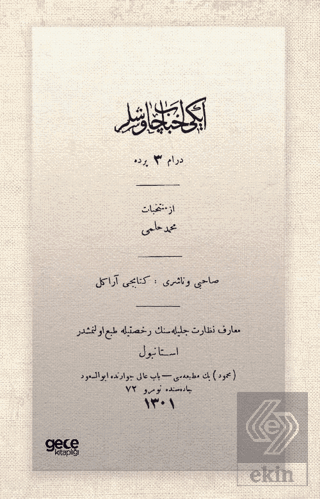 ایکی احباب چاوشلر
درام ٣ پرده
از منتخبات
محمد حلمی
صاحبی و ناشری : کتابجی آراکل
معارف نظارت جلیله‌سنك رخصتیله طبع اولنمشدر
استانبول
(محمود) بك مطبعه‌سی — باب عالی جوارنده ابوالسعود
جاده‌سنده نومرو ٧٢
١٣٠١
gece
kitaplığı
ekin